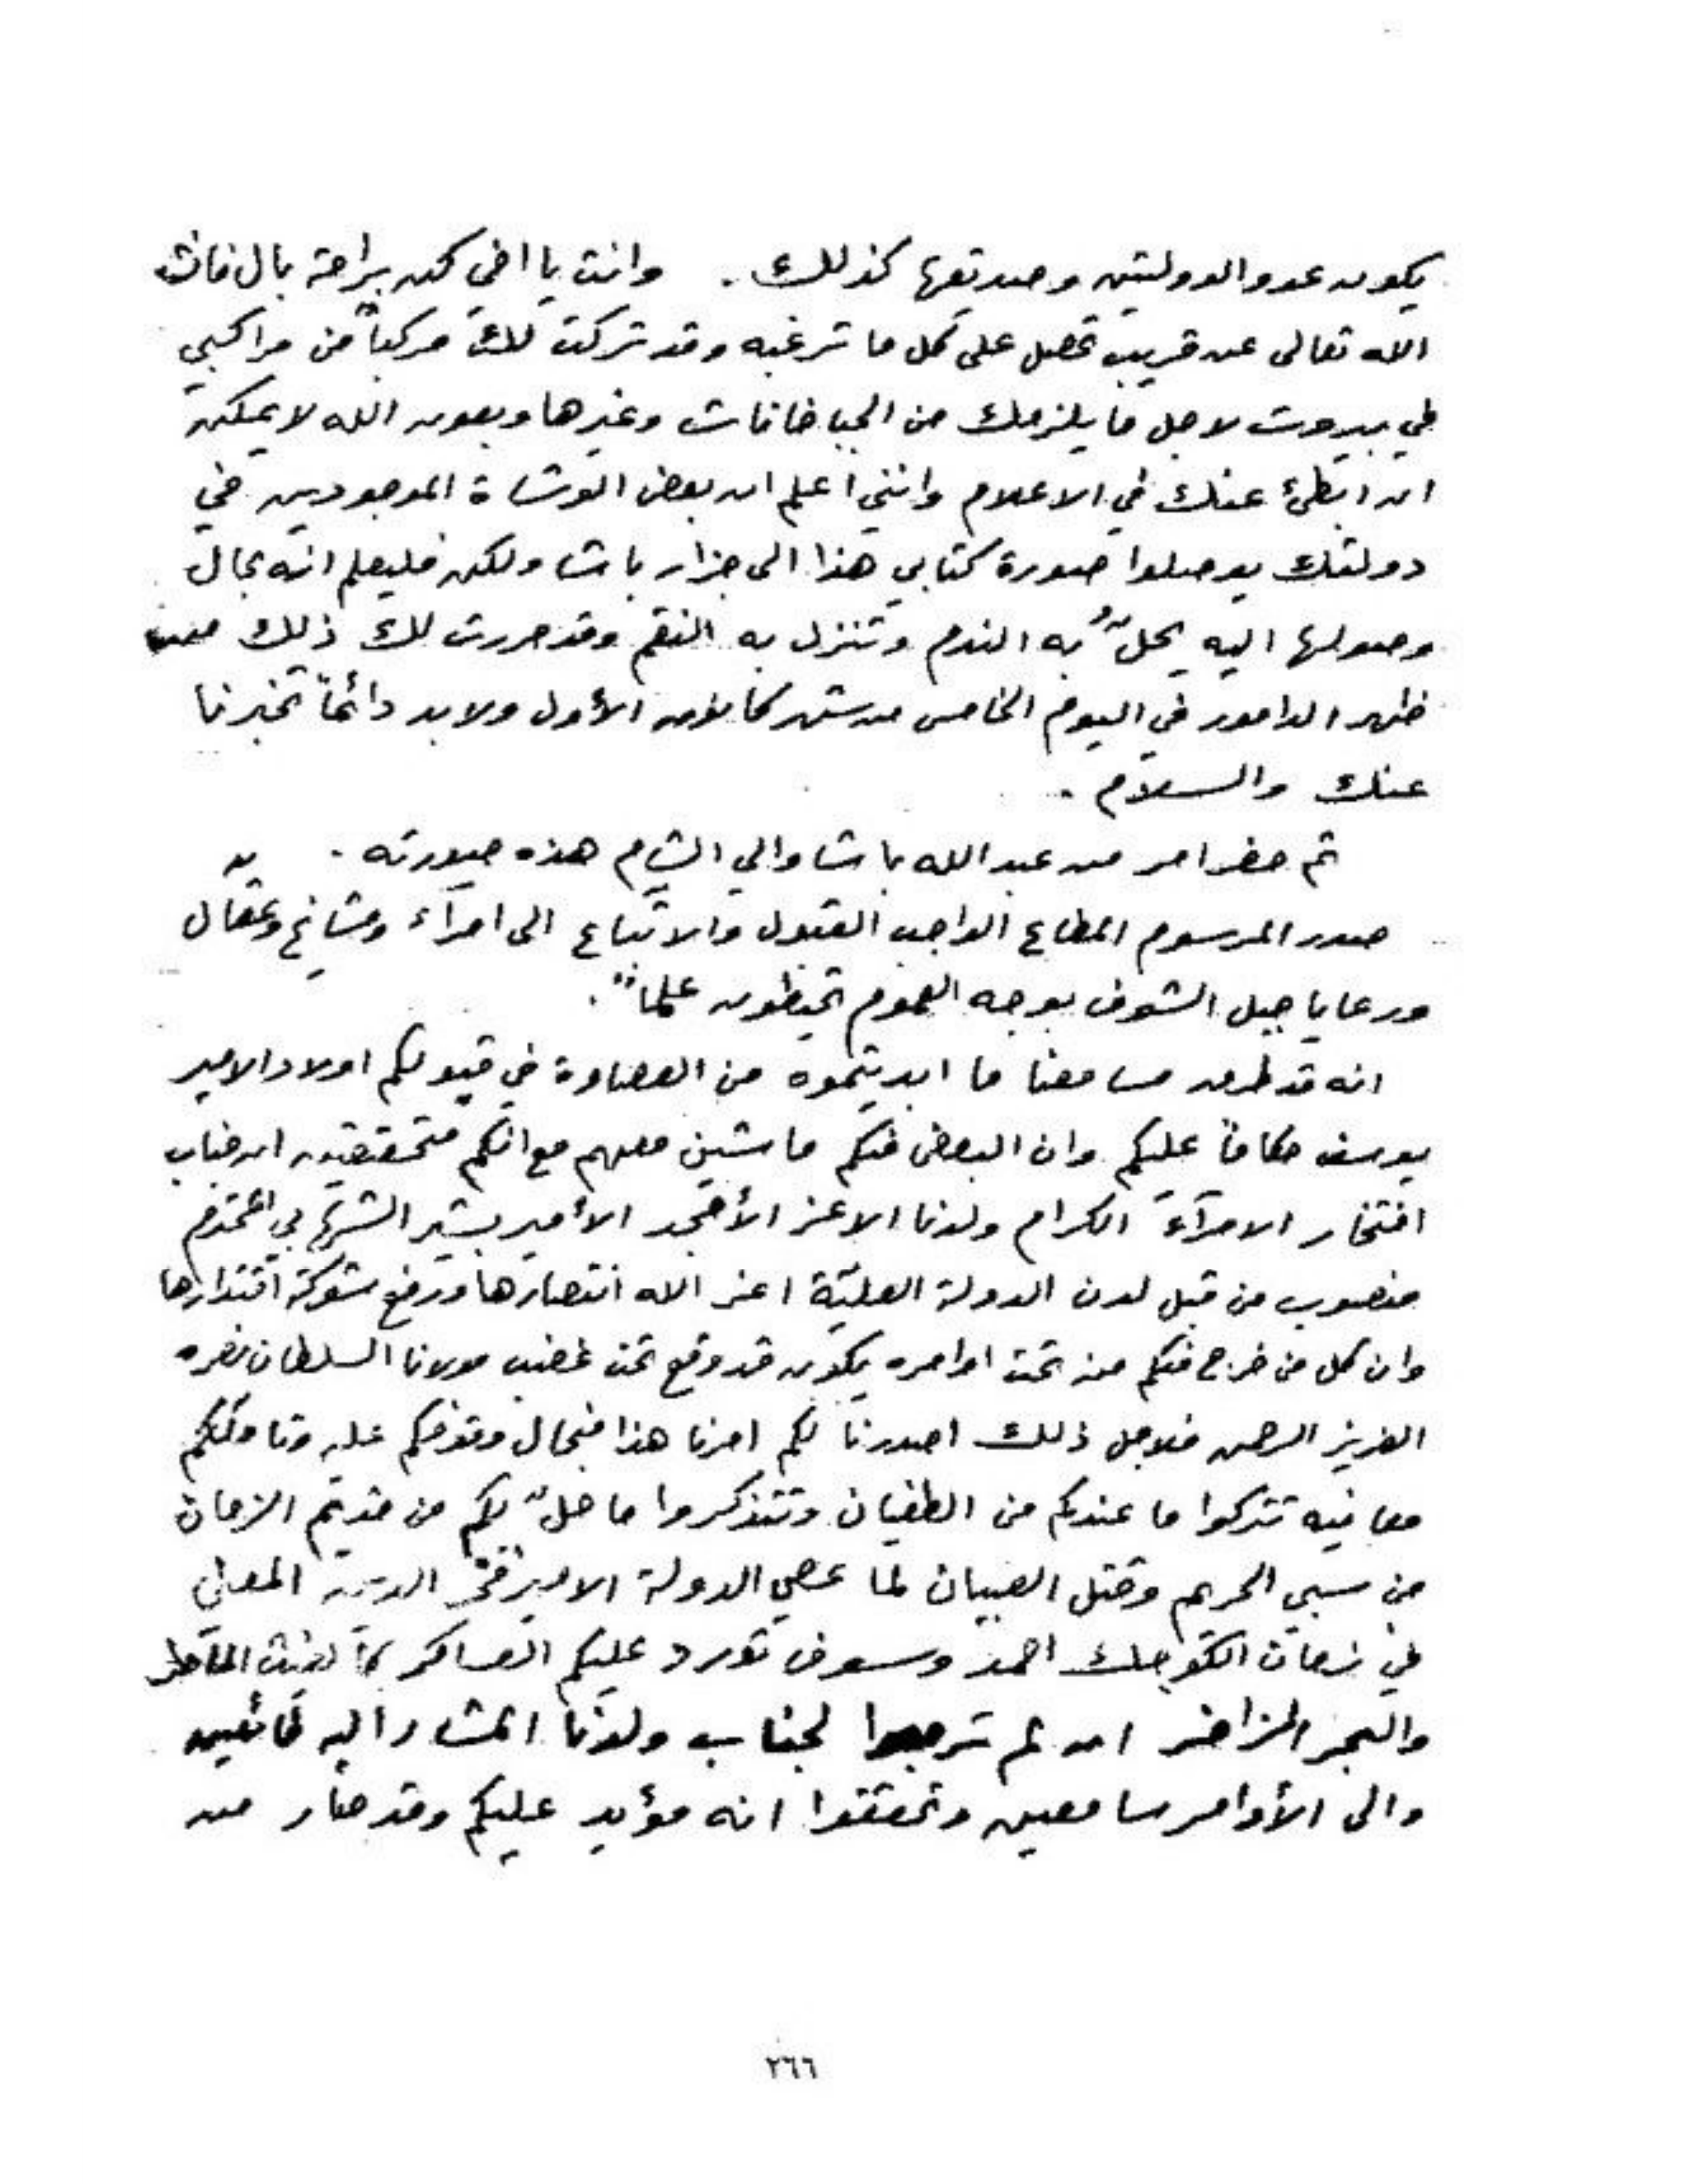 يكون عدو الدولتين وصديقها كذلك. وانت يا اخي كن براحة بال فانشا
الله تعالى عن قريب تحصل على كل ما ترغبه وقد تركت لك مركباً من مراكبي
في بيروت لاجل ما يلزمك من الجباخانات وغيرها وبعون الله لا يمكن
ان ابطئ عنك في الاعلام وانني اعلم ان بعض الوشاة الموجودين في
دولتك يوصلوا صورة كتابي هذا الى جزار باشا ولكن فليعلم انه بحال
وصولها اليه يحلّ به الندم وتنزل به النقم وقد حررت لك ذلك من
ظهر الدامور في اليوم الخامس من شهر كانون الأول ولا بد دائماً تخبرنا
عنك والسلام.
ثم حضر امر من عبد الله باشا والي الشام هذه صورته.
صدر المرسوم المطاع الواجب القبول والاتباع الى امرآء ومشايخ وعقال
ورعايا جبل الشوف بوجه العموم تحيطون علماً.
انه قد طرق مسامعنا ما ابديتموه من العصاوة في قبولكم اولاد الامير
يوسف حكاماً عليكم وان البعض منكم ماشين معهم مع انكم متحققين ان جناب
افتخار الامرآء الكرام ولدنا الاعز الأمجد الأمير بشير الشهابي المحترم
منصوب من قبل لدن الدولة العليّة اعز الله انتصارها ورفع شوكة اقتدارها
وان كل من خرج منكم من تحت اوامره يكون قد وقع تحت غضب مولانا السلطان نصره
العزيز الرحمن فلاجل ذلك اصدرنا لكم امرنا هذا فبحال وقوفكم عليه وتاملكم
معانيه تتركوا ما عندكم من الطغيان وتتذكروا ما حلّ بكم من قديم الزمان
من سبي الحريم وقتل الصبيان لما عصي الدولة الامير فخر الدين المعني
في زمان الكوجك احمد وسوف تورد عليكم العساكر كالغيث الماطر
والبحر الزاخر ان لم ترجعوا لجناب ولدنا المشار اليه طائعين
والى الأوامر سامعين وتحققوا انه مؤيد عليكم وقد صار من
٢٦٦